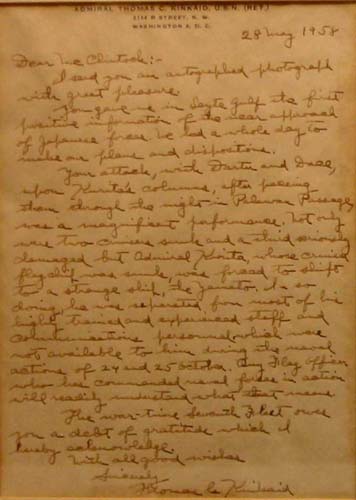 ADMIRAL THOMAS C. KINKAID, U.S.N. (RET.)
WASHINGTON 8, D. C.
28 May 1958
Dear Mc Clintock:
I send you an autographed photograph
with great pleasure.
You gave me in Leyte Gulf the first
positive information of the near approach
of Japanese forces. We had a whole day to
make our plans and dispositions.
Your attack, with Darter and Dace,
upon Kurita's columns, after pacing
them through the night in Palawan Passage,
was a magnificent performance. Not only
were two cruisers sunk and a third seriously
damaged but Admiral Kurita, whose cruiser
flagship was sunk, was forced to shift
to a strange ship, the Yamato. In so
doing he was separated from most of his
highly trained and experienced staff and
communications personnel which were
not available to him during the naval
actions of 24 and 25 October. Any Flag Officer
who has commanded naval forces in action
will readily understand what that means.
The war-time Seventh Fleet owes
you a debt of gratitude which I
hereby acknowledge.
With all good wishes
Sincerely
Thomas C. Kinkaid